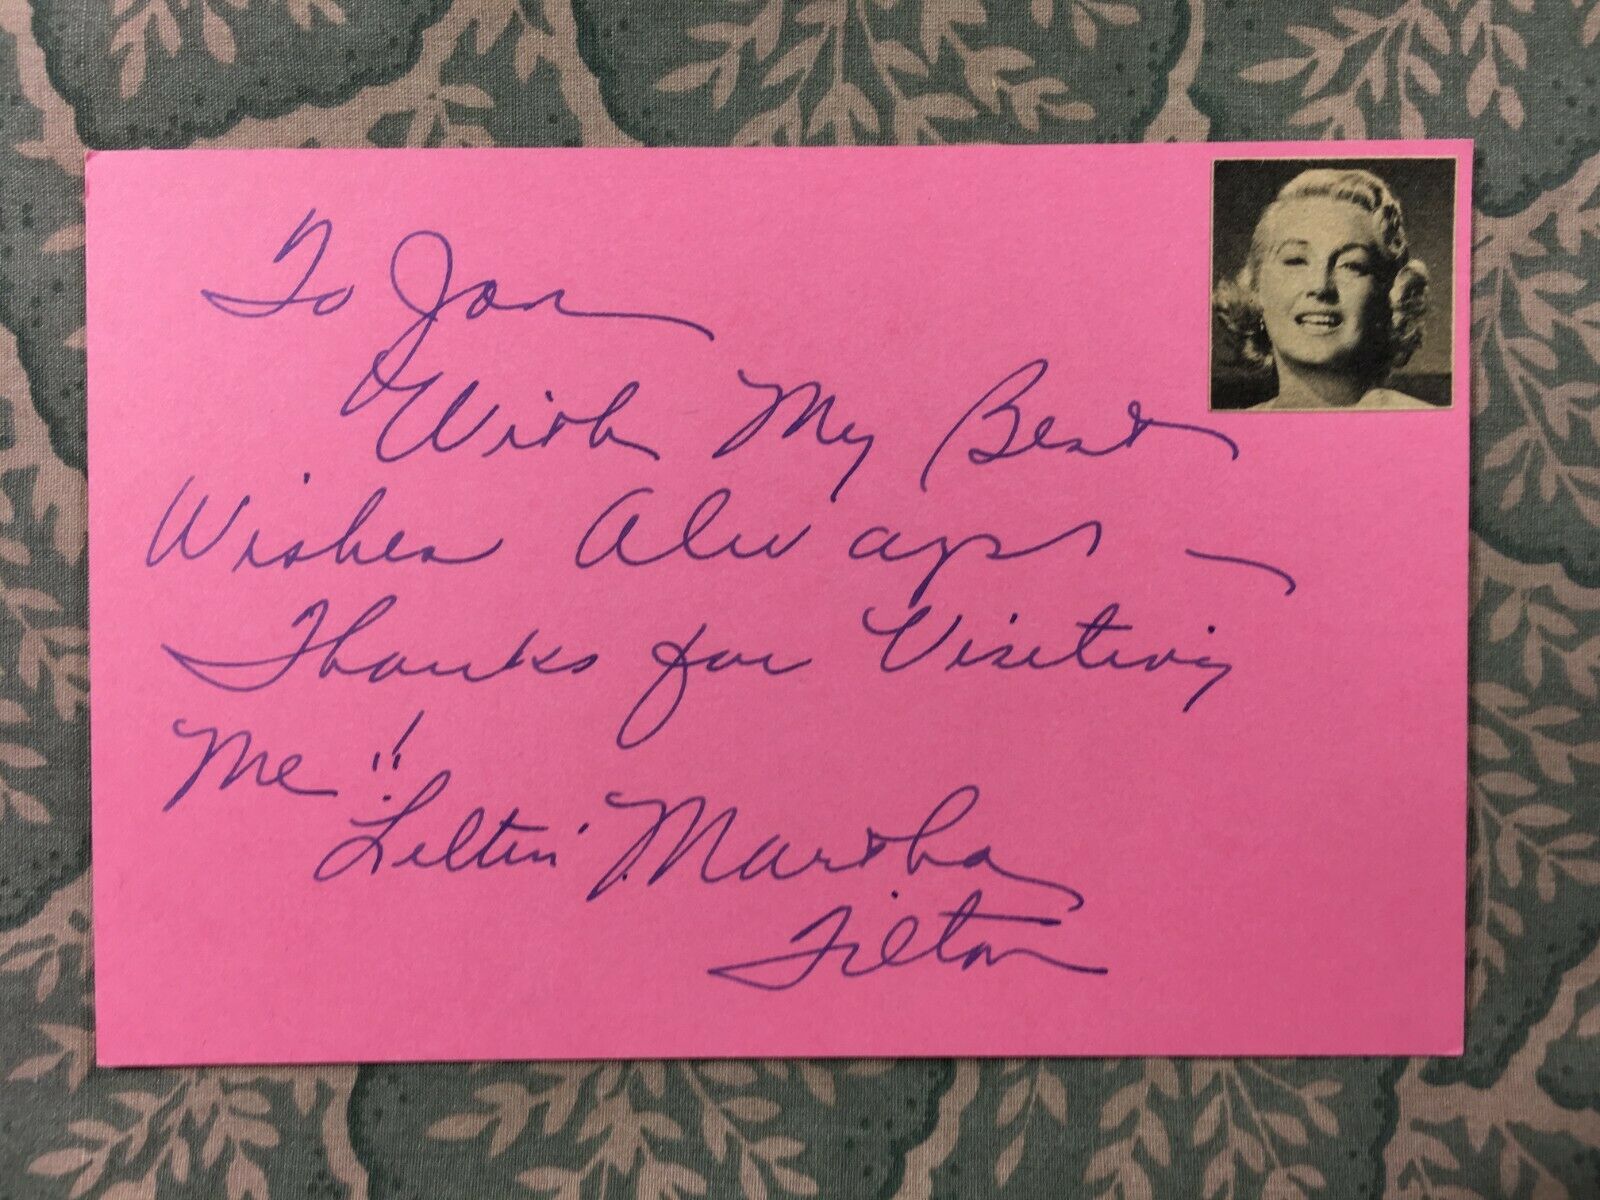 To Jon
With My Best
Wishes Always –
Thanks for Visiting
Me!!
Liltin' Martha
Tilton